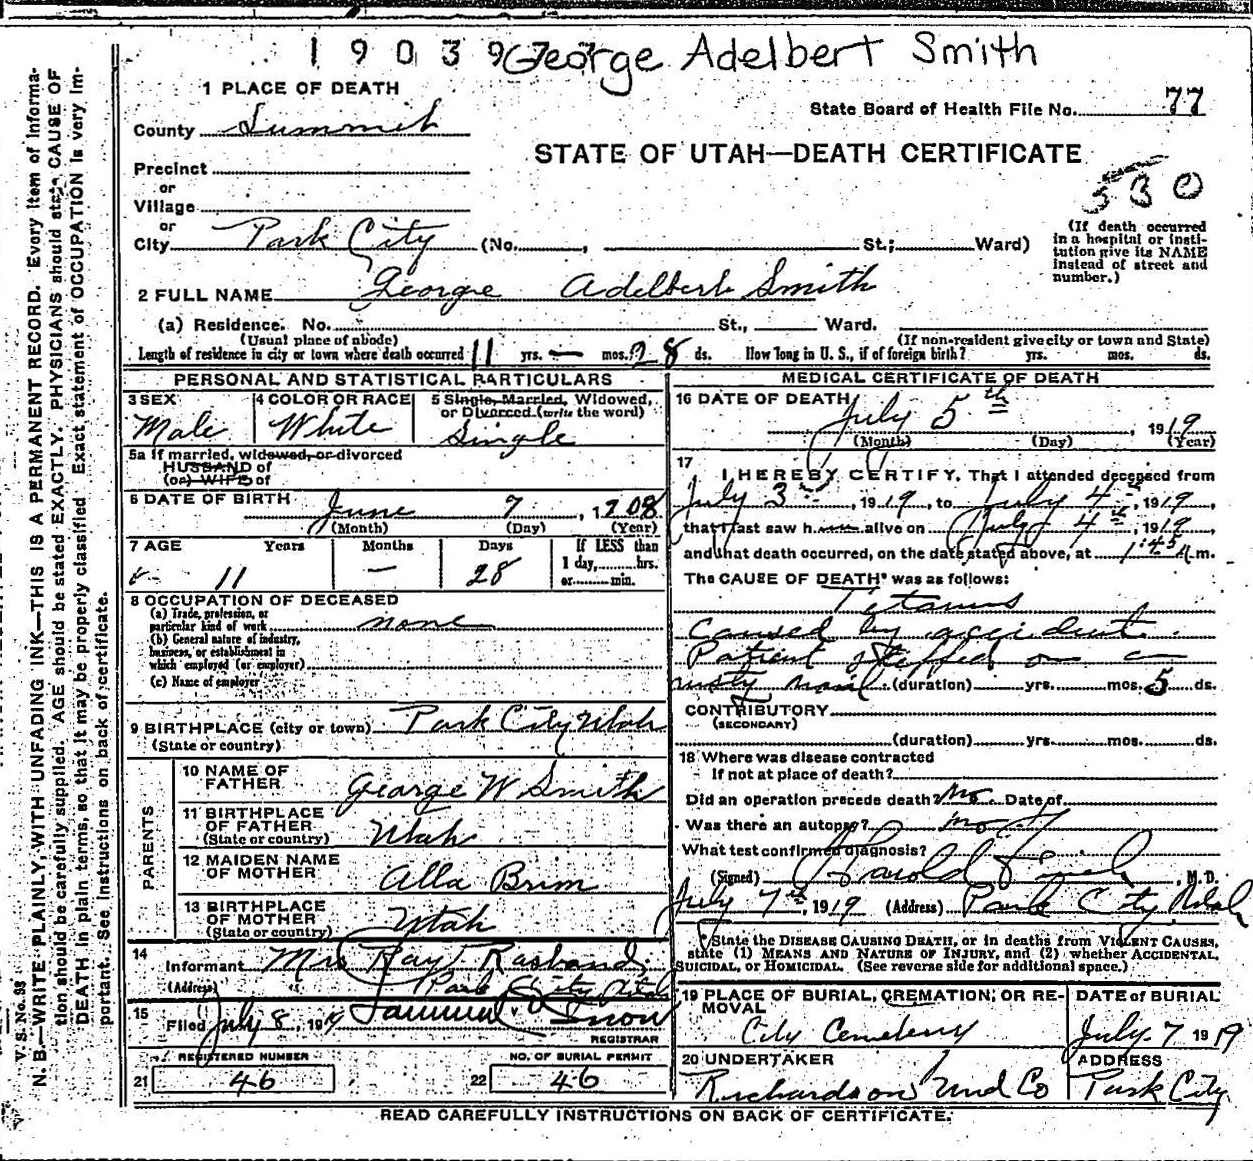 1 9 0 3 9 George Adelbert Smith
1 PLACE OF DEATH
State Board of Health File No. 77
County Summit
STATE OF UTAH—DEATH CERTIFICATE
530
Precinct
or
Village
or
City Park City (No. , St.; Ward)
(If death occurred in a hospital or insti-
tution give its NAME instead of street and number.)
2 FULL NAME George Adelbert Smith
(a) Residence. No. St., Ward.
(Usual place of abode) (If non-resident give city or town and State)
Length of residence in city or town where death occurred 11 yrs. — mos. 28 ds. How long in U. S., if of foreign birth? yrs. mos. ds.
PERSONAL AND STATISTICAL PARTICULARS
3 SEX Male
4 COLOR OR RACE White
5 Single, Married, Widowed, or Divorced (write the word) Single
5a If married, widowed, or divorced
HUSBAND of
(or) WIFE of
6 DATE OF BIRTH June 7, 1908
(Month) (Day) (Year)
7 AGE Years Months Days If LESS than
11 — 28 1 day, hrs.
or min.
8 OCCUPATION OF DECEASED
(a) Trade, profession, or
particular kind of work none
(b) General nature of industry,
business, or establishment in
which employed (or employer)
(c) Name of employer
9 BIRTHPLACE (city or town) Park City Utah
(State or country)
PARENTS
10 NAME OF FATHER George W Smith
11 BIRTHPLACE OF FATHER Utah
(State or country)
12 MAIDEN NAME OF MOTHER Alla Brim
13 BIRTHPLACE OF MOTHER Utah
(State or country)
14 Informant Mrs Ray Rasband
(Address) Park City Utah
15 Filed July 8, 1919 Snow
REGISTRAR
REGISTERED NUMBER NO. OF BURIAL PERMIT
21 46 22 46
MEDICAL CERTIFICATE OF DEATH
16 DATE OF DEATH
July 5th, 1919
(Month) (Day) (Year)
17 I HEREBY CERTIFY, That I attended deceased from
July 3, 1919, to July 4, 1919,
that I last saw h alive on July 4th, 1919,
and that death occurred, on the date stated above, at 1:45 m.
The CAUSE OF DEATH* was as follows:
Tetanus
caused by accident.
Patient steffed on a
rusty nail. (duration) yrs. mos. 5 ds.
CONTRIBUTORY
(SECONDARY)
(duration) yrs. mos. ds.
18 Where was disease contracted
If not at place of death?
Did an operation precede death? No. Date of
Was there an autopsy? no
What test confirmed diagnosis?
(Signed) Harold, M. D.
July 7th, 1919 (Address) Park City Utah
*State the DISEASE CAUSING DEATH, or in deaths from VIOLENT CAUSES,
state (1) MEANS AND NATURE OF INJURY, and (2) whether ACCIDENTAL,
SUICIDAL, or HOMICIDAL. (See reverse side for additional space.)
19 PLACE OF BURIAL, CREMATION, OR RE-
MOVAL
City Cemetery
DATE of BURIAL
July 7 1919
20 UNDERTAKER
Richardson Und Co
ADDRESS
Park City
READ CAREFULLY INSTRUCTIONS ON BACK OF CERTIFICATE.
V. S. No. 93
N. B.—WRITE PLAINLY, WITH UNFADING INK—THIS IS A PERMANENT RECORD. Every item of informa-
tion should be carefully supplied. AGE should be stated EXACTLY. PHYSICIANS should state CAUSE OF
DEATH in plain terms, so that it may be properly classified. Exact statement of OCCUPATION is very im-
portant. See Instructions on back of certificate.